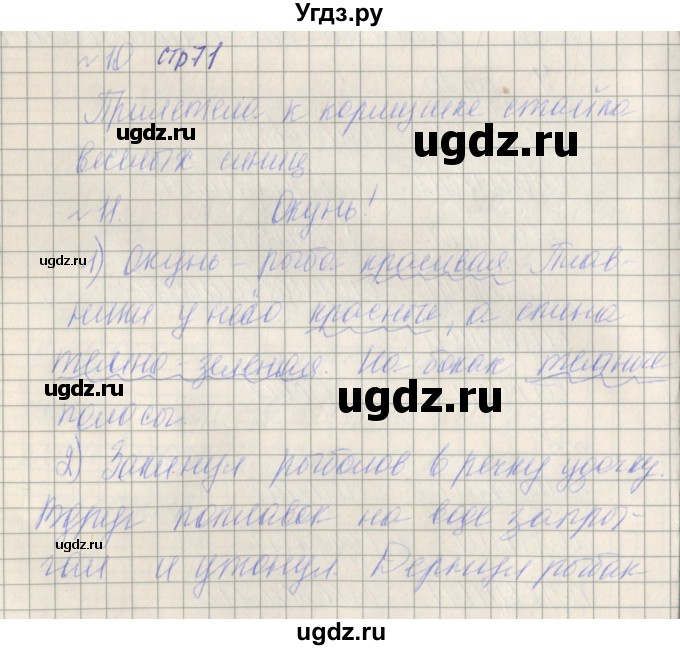 Угдз.ру
№10 стр71
Прилетела к кормушке стайка
весёлых синиц
№11. Окунь!
1) Окунь - рыба красивая Плав-
ники у него красные, а спина
темно-зеленая. На боках темные
полосы.
2) Закинул рыболов в речку удочку.
Вдруг поплавок на воде запры-
гал и утонул Дернул рыбак
ugdz.ru
ugdz.ru
ugdz.ru
ugdz.ru
ugdz.ru
ugdz.ru
ugdz.ru